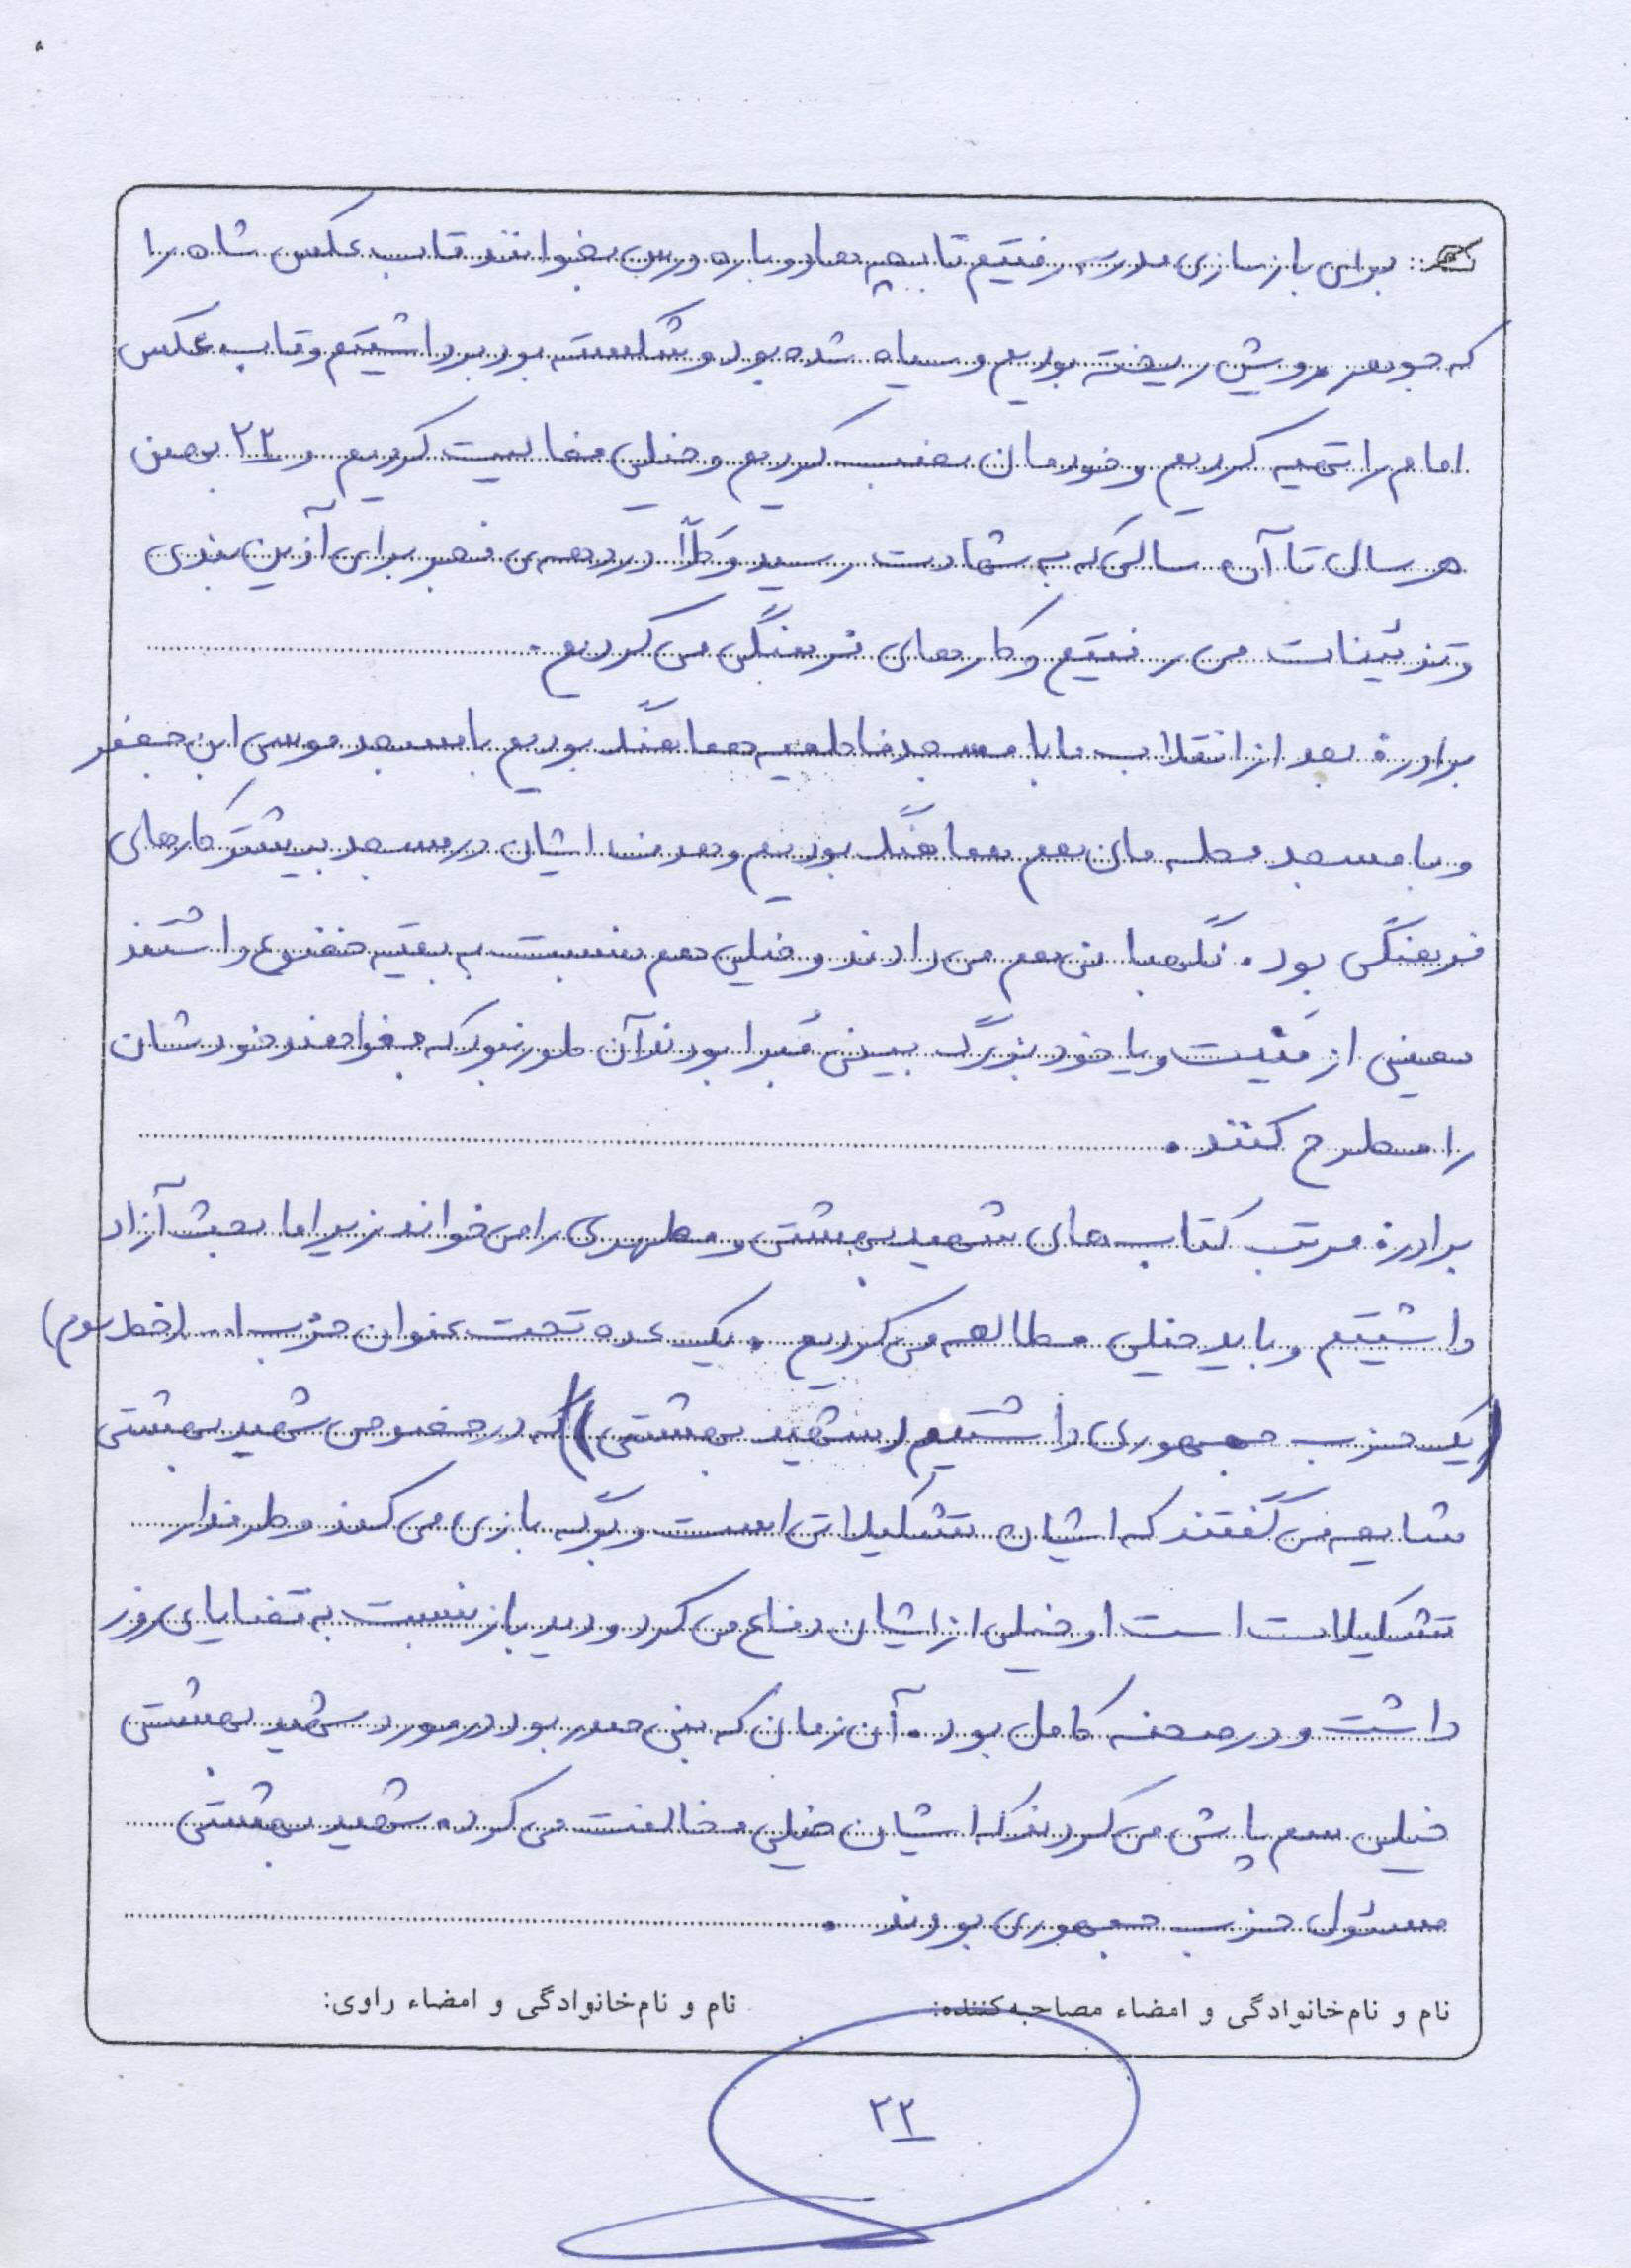 برای بازسازی مدرسه رفتیم تا بچه ها دوباره درس بخوانند قاب عکس شاه را
که جوهر رویش ریخته بودیم و سیاه شده بود و شکسته بود برداشتیم و قاب عکس
امام را تهیه کردیم و خودمان نصب کردیم و خیلی فعالیت کردیم و ۲۲ بهمن
هر سال تا آن سالی که به شهادت رسید و کلاً در دهه ی فجر برای آذین بندی
و تزئینات می رفتیم و کارهای فرهنگی می کردیم.
برادرم بعد از انقلاب ما با مسجد فاطمیه هماهنگ بودیم با مسجد موسی ابن جعفر
و با مسجد محله مان هم هماهنگ بودیم و هدف ایشان در مسجد بیشتر کارهای
فرهنگی بود. نگهبانی هم می دادند و خیلی هم نسبت به بقیه خضوع داشتند
یعنی از مَنیّت و یا خود بزرگ بینی مُبرا بودند آن طور نبود که بخواهند خودشان
را مطرح کنند.
برادرم مرتب کتاب های شهید بهشتی و مطهری را می خواند زیرا ما بحث آزاد
داشتیم و باید خیلی مطالعه می کردیم. یک عده تحت عنوان حزب ا... (خط سوم)
(یک حزب جمهوری داشتیم (شهید بهشتی)) که در خصوص شهید بهشتی
شایعه می گفتند که ایشان تشکیلاتی است و گروه بازی می کند و طرفدار
تشکیلات است او خیلی از ایشان دفاع می کرد و دید باز نسبت به قضایای روز
داشت و در صحنه کامل بود. آن زمان که بنی صدر بود در مورد شهید بهشتی
خیلی سم پاشی می کردند که ایشان خیلی مخالفت می کرد. شهید بهشتی
مسئول حزب جمهوری بودند.
نام و نام خانوادگی و امضاء مصاحبه کننده: نام و نام خانوادگی و امضاء راوی:
۲۲